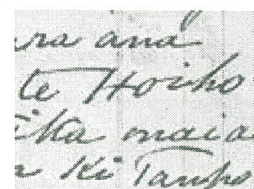 ra ana
te Hoiho
ika maia
Ki Taupo